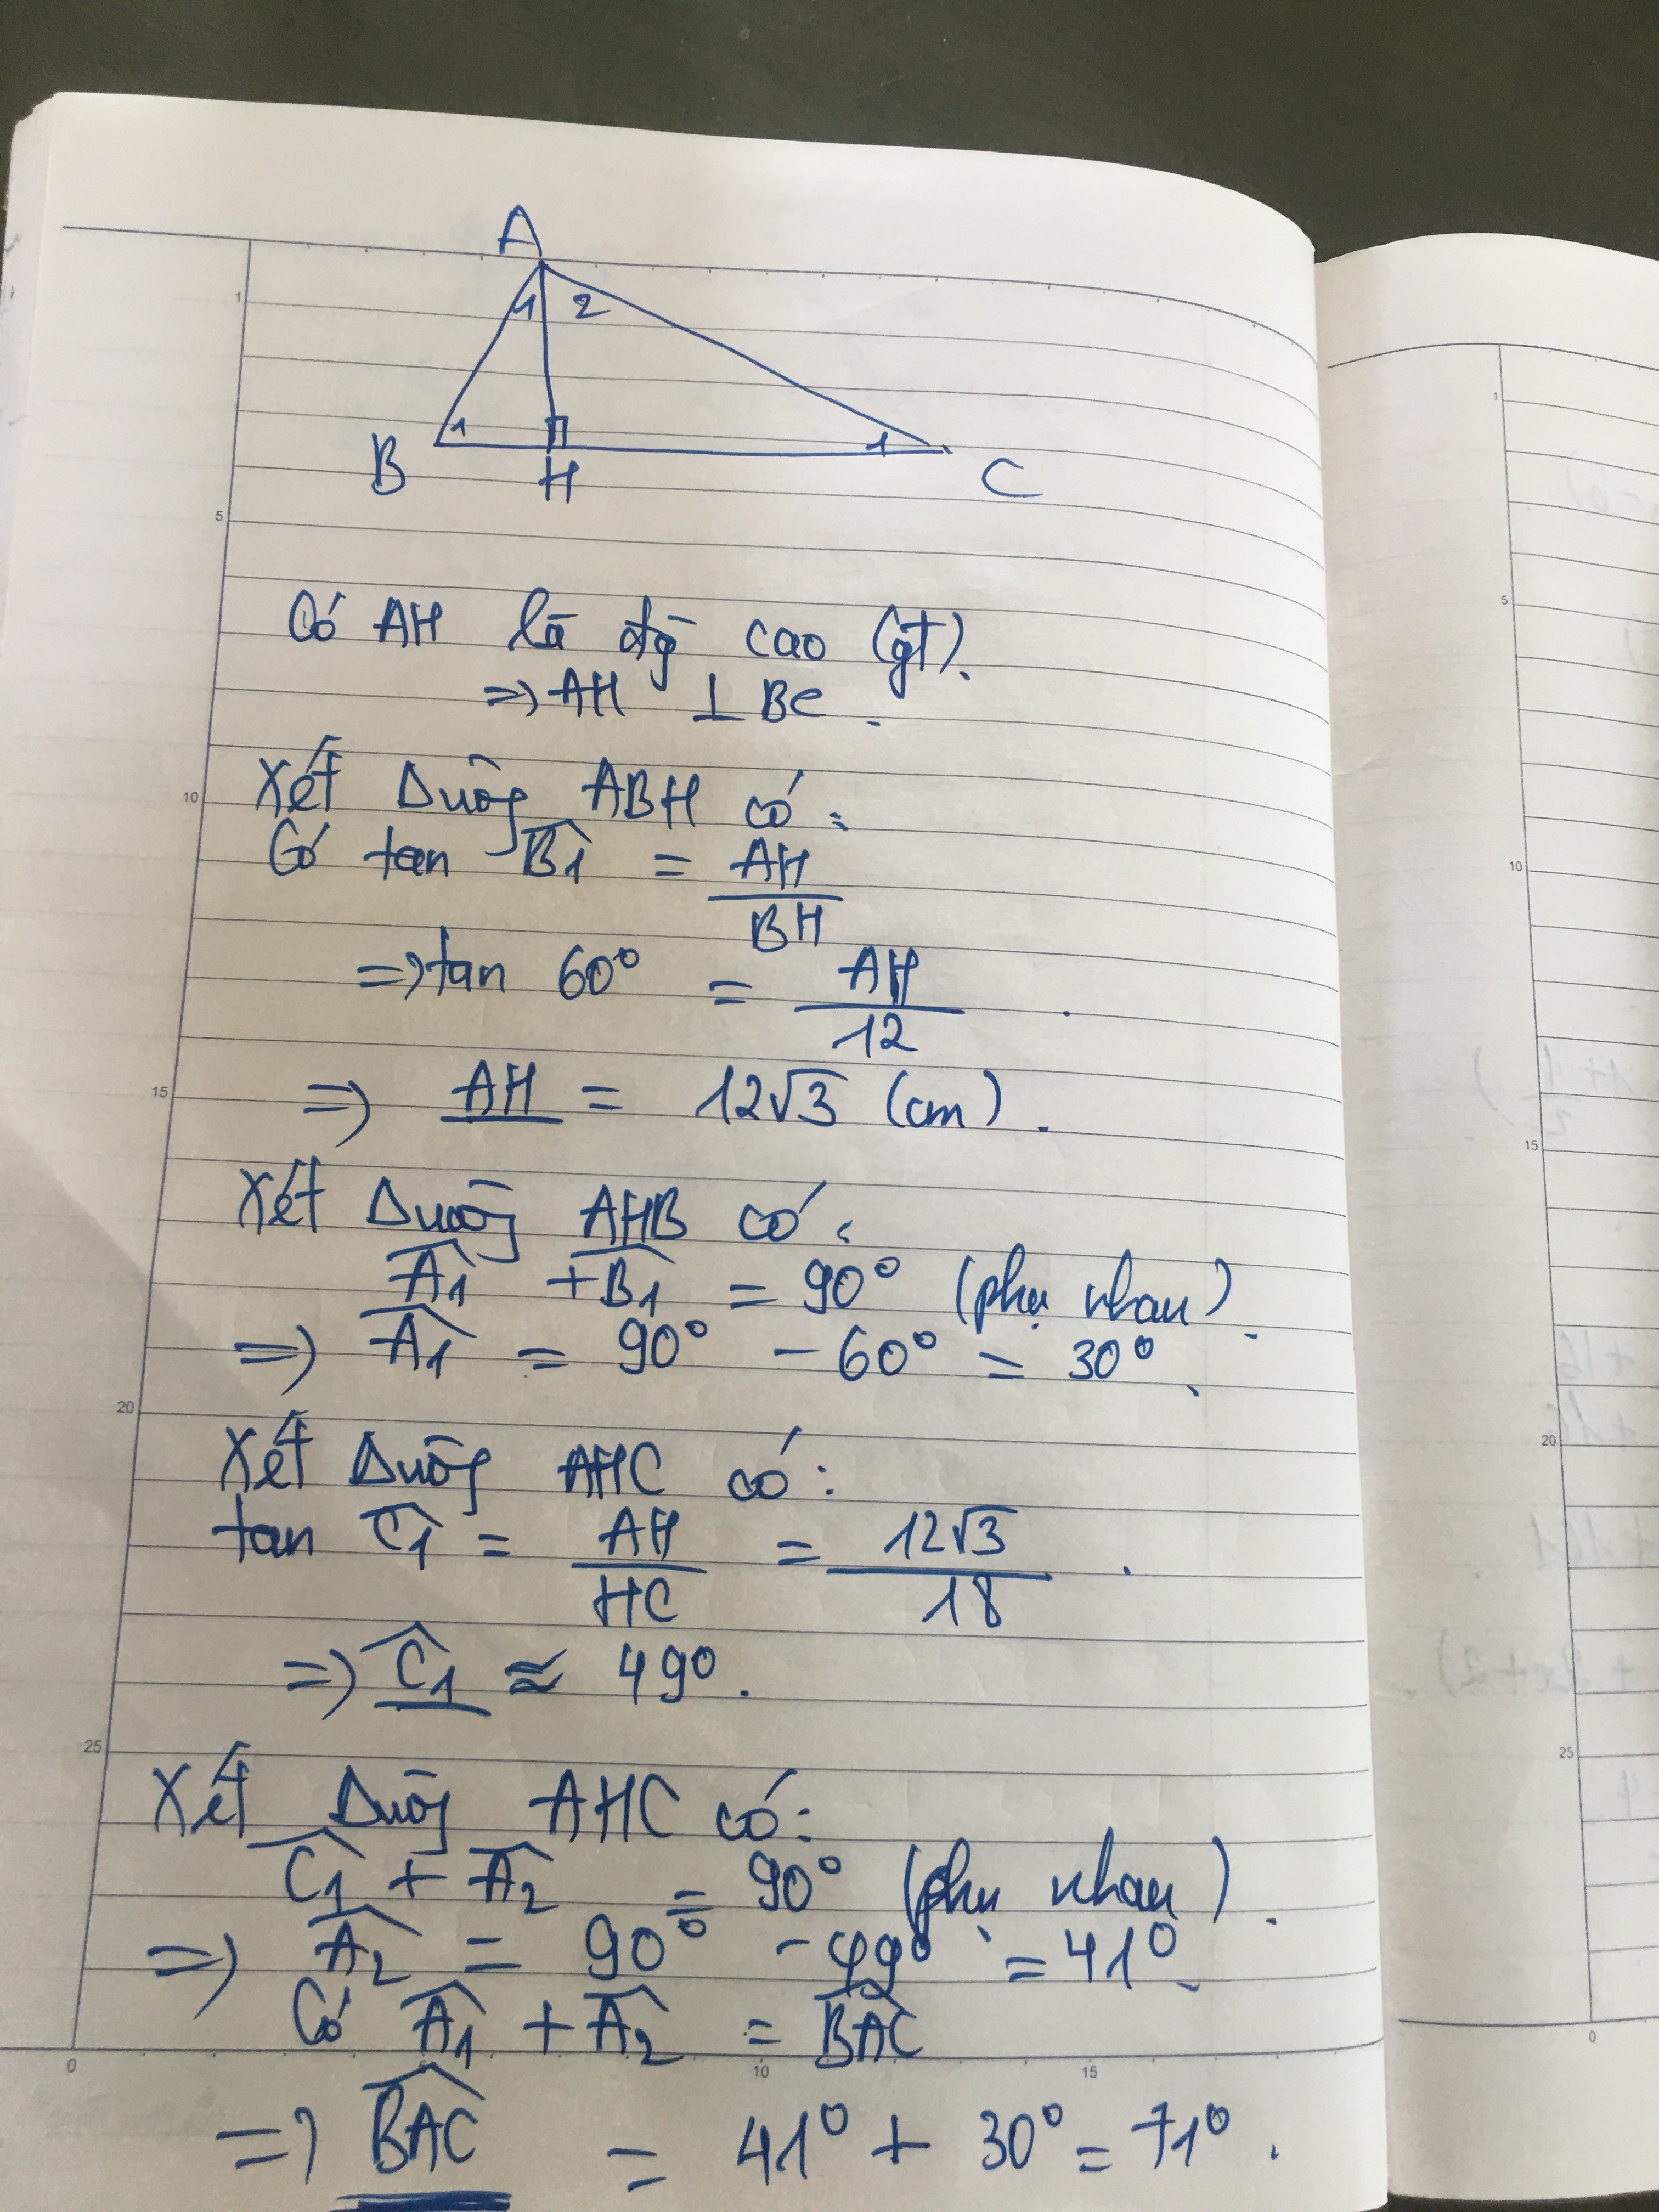 A
1 2
1
1
B
H
C
Có AH là đg cao (gt).
=> AH ⊥ BC.
Xét Δuông ABH có:
Có tan B̂1 = AH/BH
=> tan 60° = AH/12.
=> AH = 12√3 (cm).
Xét Δuông AHB có:
Â1 + B̂1 = 90° (phụ nhau).
=> Â1 = 90° - 60° = 30°.
Xét Δuông AHC có:
tan Ĉ1 = AH/HC = 12√3/18.
=> Ĉ1 ≈ 49°.
Xét Δuông AHC có:
Ĉ1 + Â2 = 90° (phụ nhau).
=> Â2 = 90° - 49° = 41°.
Có Â1 + Â2 = BAC
=> BAC = 41° + 30° = 71°.
1
5
10
15
20
25
0
10
15
1
5
10
15
20
25
0